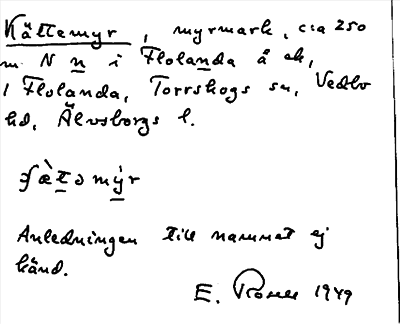 Kättemyr, myrmark, cia 250
m. N n i Flolanda å ek,
1 Flolanda, Torrskogs sn, Vedbo
hd, Älvsborgs l.
æ̀təmýr
Anledningen till namnet ej
känd.
E. 1949